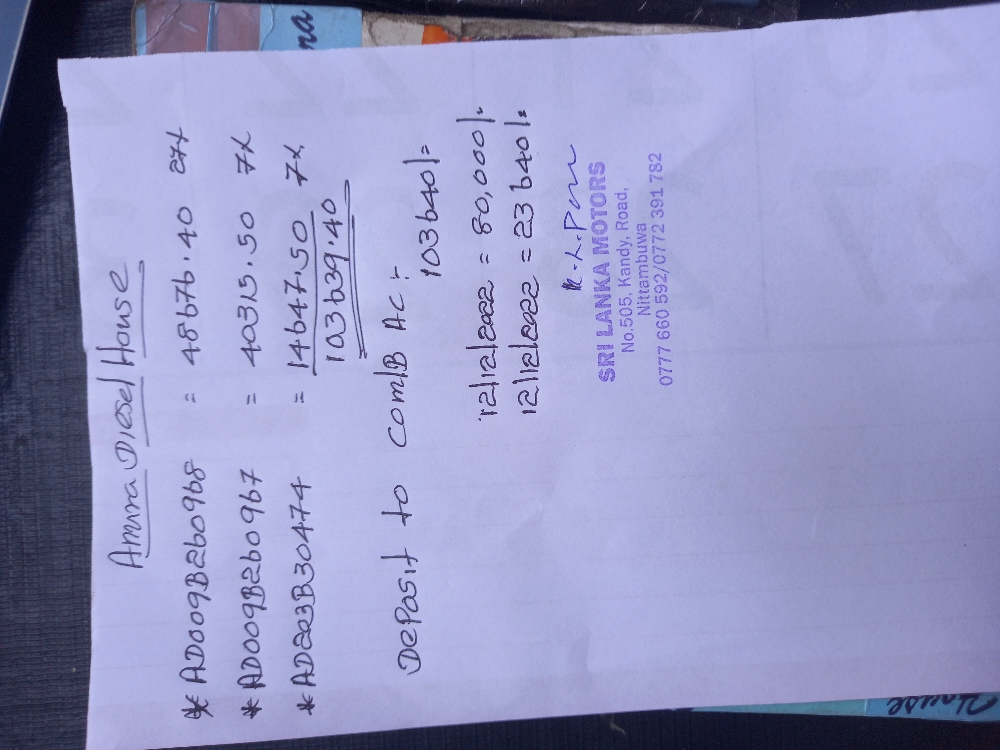 Amura Diesel House
* AD009B260968 = 48676.40 27X
* AD009B260967 = 40315.50 7X
* AD203B30474 = 14647.50 7X
103639.40
Deposit to Com/B Ac:-
103640/=
12/12/2022 = 80,000/=
12/12/2022 = 23640/=
SRI LANKA MOTORS
No.505, Kandy, Road,
Nittambuwa
0777 660 592/0772 391 782
House